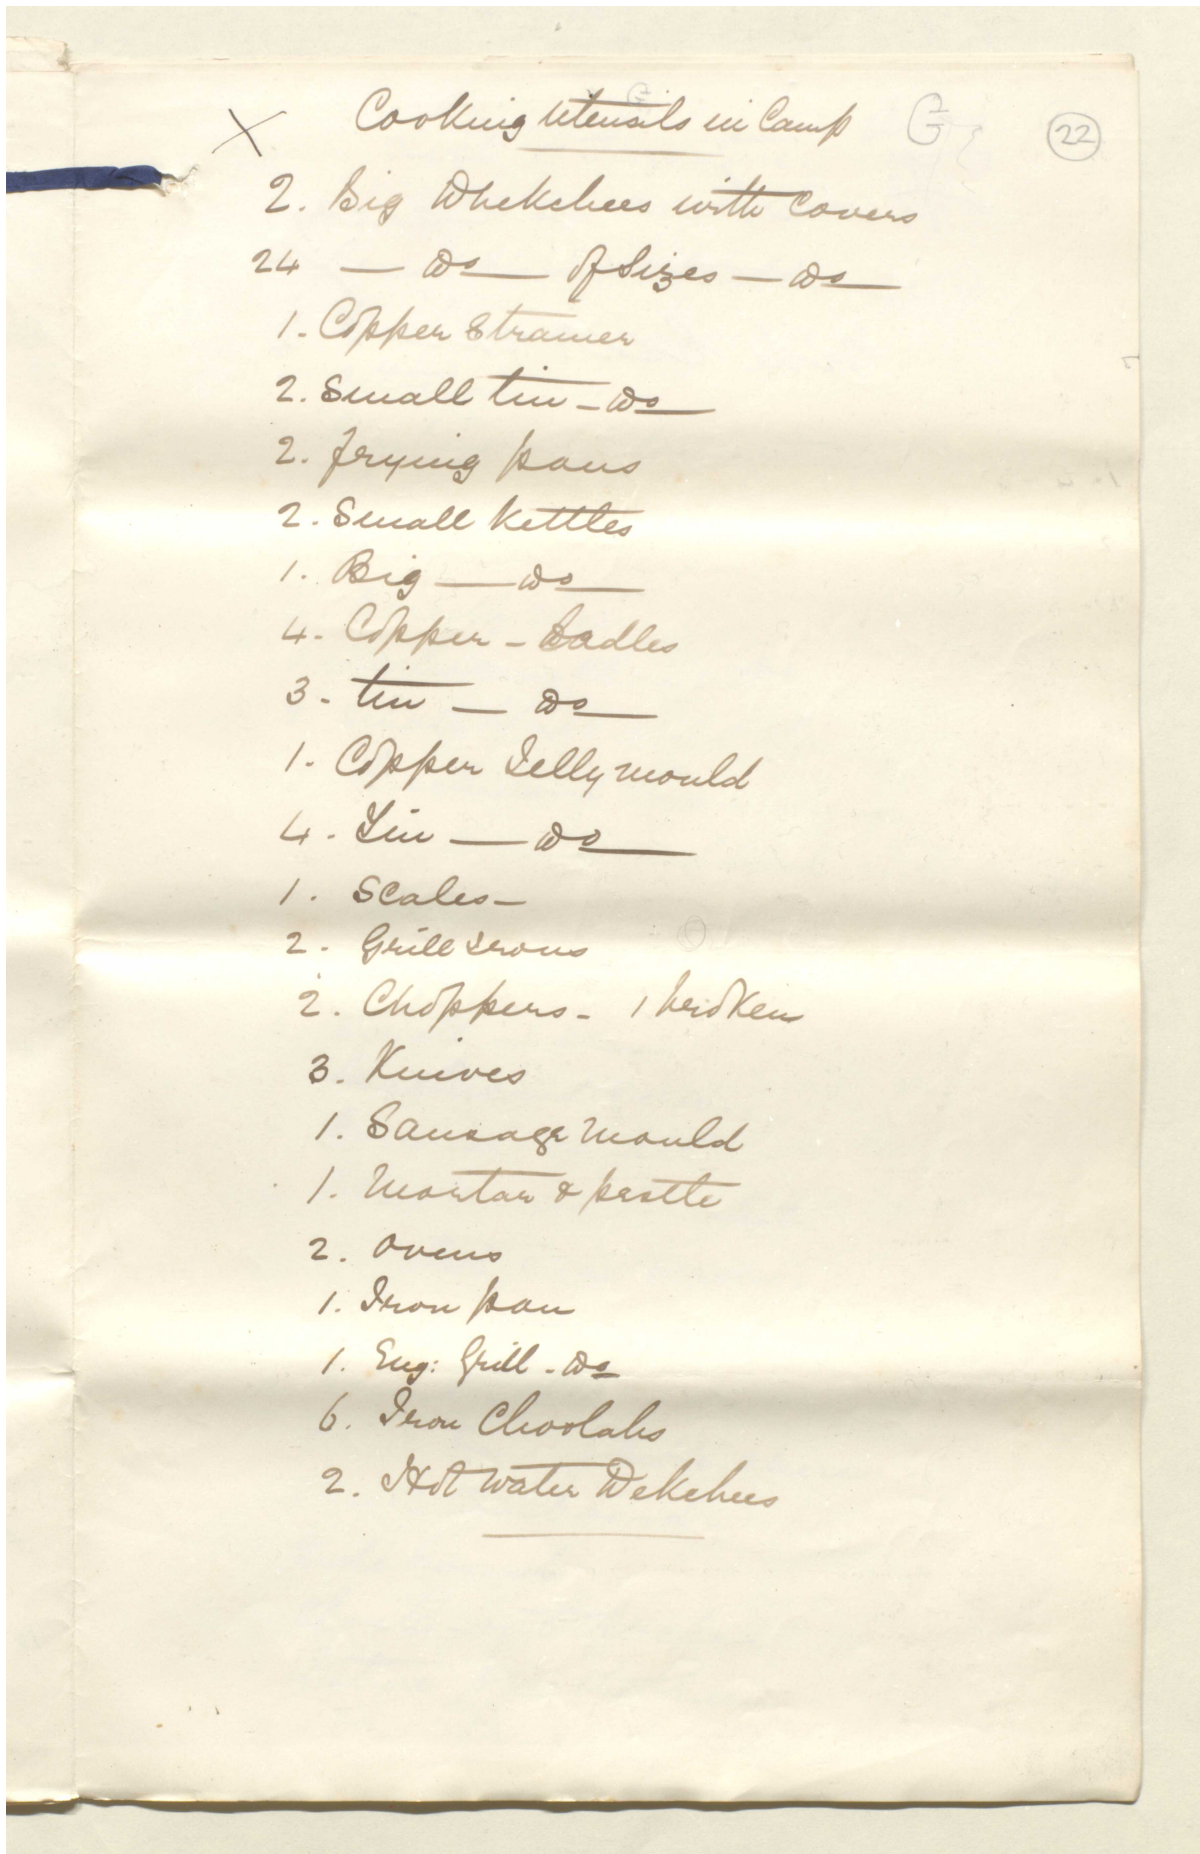 X Cooking Utensils in Camp G 22
2. Big Dhekchees with Covers
24 — Do — of Sizes — Do —
1. Copper Strainer
2. Small tin — Do —
2. frying pans
2. Small kettles
1. Big — Do —
4. Copper — Ladles
3. tin — Do —
1. Copper Jelly mould
4. Tin — Do —
1. Scales —
2. Grill Irons
2. Choppers — 1 broken
3. Knives
1. Sausage Mould
1. Mortar & pestle
2. Ovens
1. Iron pan
1. Eng: Grill — Do
6. Iron Choolahs
2. Hot Water Dekchees